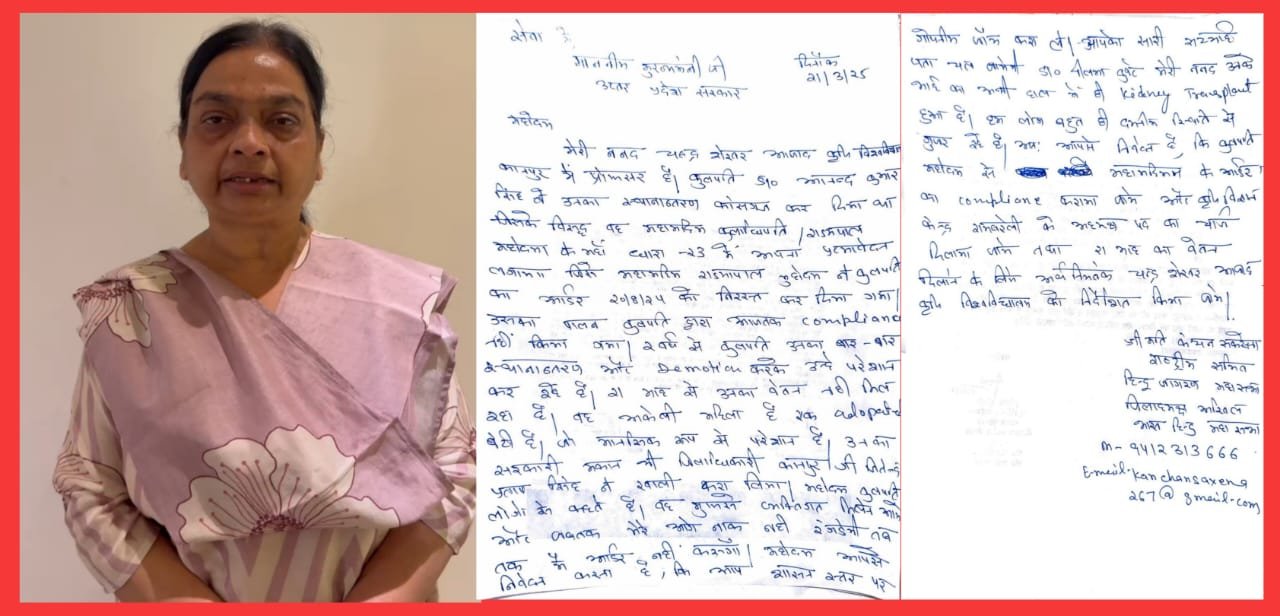 सेवा में
माननीय मुख्यमंत्री जी
उत्तर प्रदेश सरकार
दिनाँक
21/3/25
महोदय
मेरी ननद चन्द्र शेखर आजाद कृषि विश्वविद्यालय
कानपुर में प्रोफेसर है। कुलपति डा० आनन्द कुमार
सिंह ने उनका स्थानान्तरण कर दिया था
जिसके विरुद्ध वह महामहिम कुलाधिपति / राज्यपाल
महोदया के यहाँ
महामहिम राज्यपाल महोदया ने कुलपति
का आर्डर को निरस्त कर दिया गया।
उसका पालन कुलपति द्वारा आजतक compliance
नहीं किया गया। 2 वर्ष से कुलपति उनका बार-बार
स्थानान्तरण और Demotion करके उन्हें परेशान
कर रहे हैं। 21 माह से उनका वेतन नहीं मिल
रहा है। वह अकेली महिला है एक adopated
बेटी है। जो मानसिक रूप से परेशान है। उनका
सरकारी मकान भी जिलाधिकारी कानपुर जी
ने खाली करा लिया। महोदय कुलपति
लोगों से कहते हैं। वह मुझसे व्यक्तिगत
और जबतक मेरे आगे नाक नहीं रगड़ेगी तब
तक मैं आर्डर नहीं करूगाँ। महोदय आपसे
निवेदन करना है, कि आप शासन स्तर पर
गोपनीय जाँच करा लें। आपको सारी सच्चाई
पता चल जायेगी डा० नीलमा कुंवर मेरी ननद उनके
भाई का अभी हाल में ही Kidney Transplant
हुआ है। हम लोग बहुत ही दयनीय स्थिति से
गुजर रहे हैं। अतः आपसे निवेदन है, कि कुलपति
महोदय से महामहिम के आर्डर
का compliance कराया जाये और कृषि विज्ञान
केन्द्र रायबरेली के अध्यक्ष पद का चार्ज
दिलाया जाये तथा 21 माह का वेतन
दिलाने के लिये चन्द्र शेखर आजाद
कृषि विश्वविद्यालय को निर्देशित किया जाये।
श्रीमति कंचन सक्सेना
राष्ट्रीय सचिव
हिन्दु जागरण महासभा
जिलाध्यक्ष अखिल
भारत हिन्दु महासभा
M- 9412313666
Email- kanchansaxena
267@gmail.com